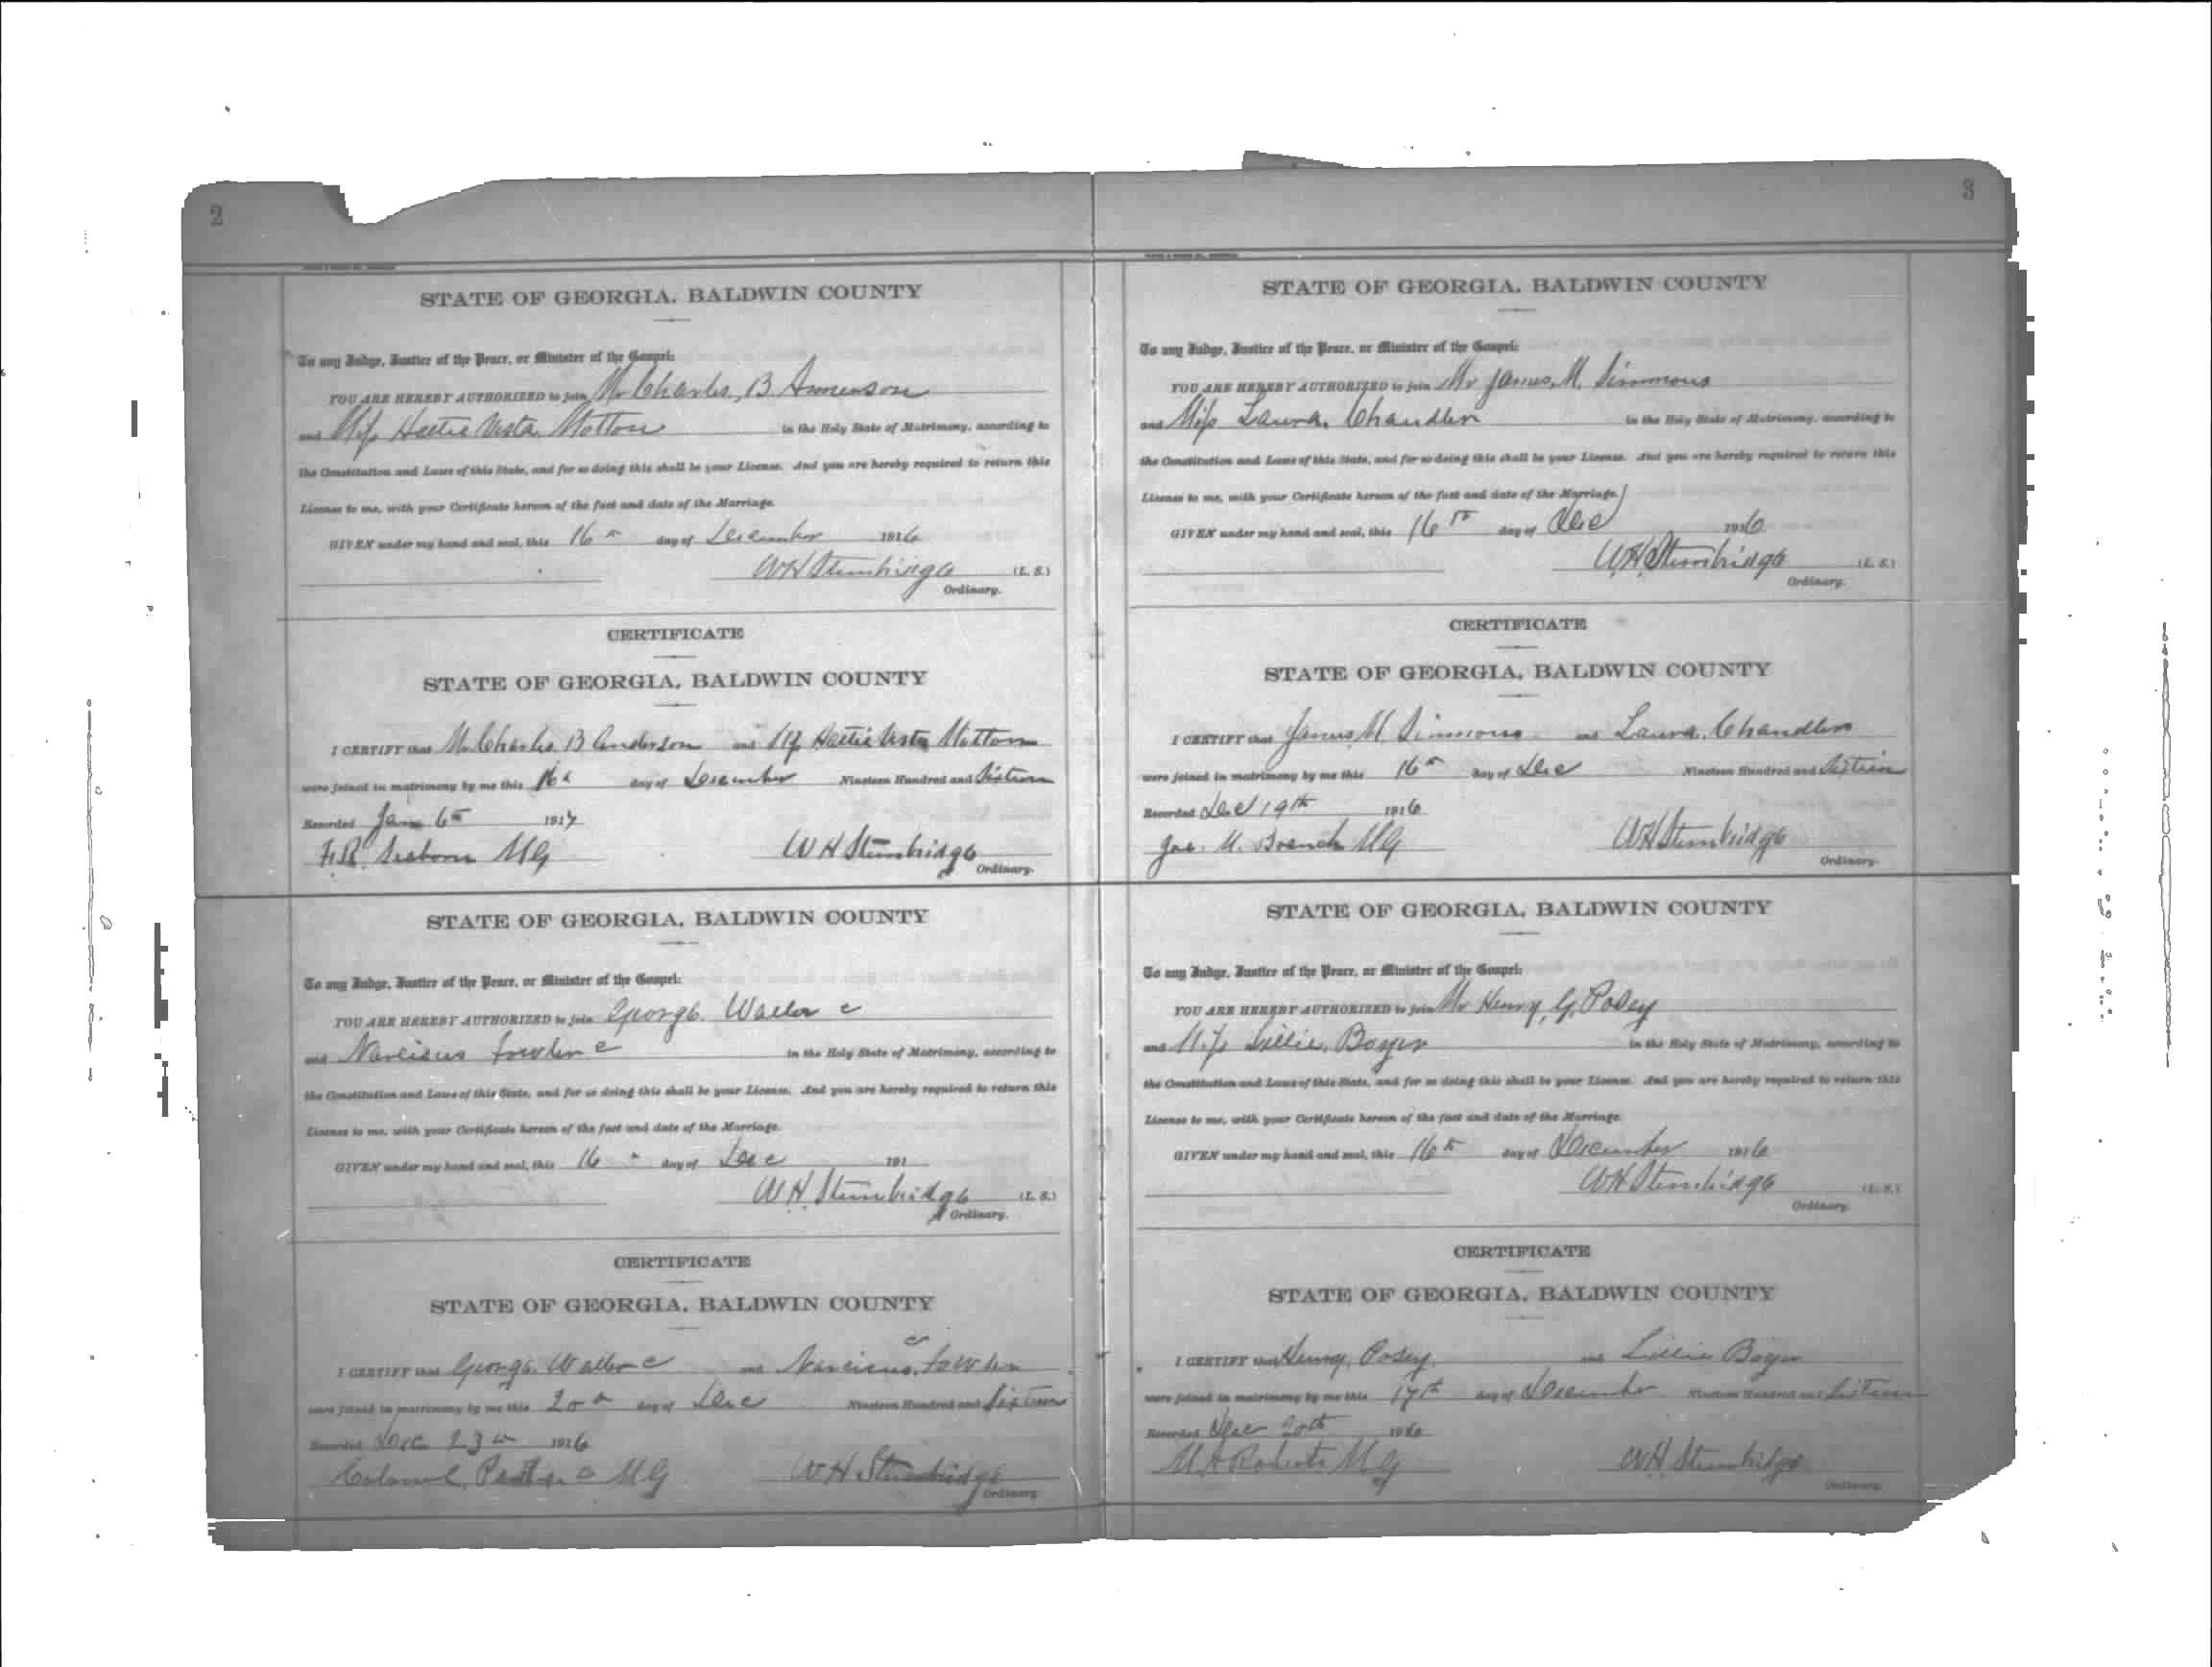 2
STATE OF GEORGIA, BALDWIN COUNTY
To any Judge, Justice of the Peace, or Minister of the Gospel:
YOU ARE HEREBY AUTHORIZED to join Mr Charles, B.
and Miss Hattie Vista in the Holy State of Matrimony, according to
the Constitution and Laws of this State, and for so doing this shall be your License. And you are hereby required to return this
License to me, with your Certificate hereon of the fact and date of the Marriage.
GIVEN under my hand and seal, this 16th day of December 1916
WH Stembridge (L. S.)
Ordinary.
CERTIFICATE
STATE OF GEORGIA, BALDWIN COUNTY
I CERTIFY that Mr Charles B Anderson and Miss Hattie Vista
were joined in matrimony by me this 16th day of December Nineteen Hundred and Sixteen
Recorded Jan 6th 1917
MG WH Stembridge
Ordinary.
STATE OF GEORGIA, BALDWIN COUNTY
To any Judge, Justice of the Peace, or Minister of the Gospel:
YOU ARE HEREBY AUTHORIZED to join George Waller c
and Narcisus Fowler c in the Holy State of Matrimony, according to
the Constitution and Laws of this State, and for so doing this shall be your License. And you are hereby required to return this
License to me, with your Certificate hereon of the fact and date of the Marriage.
GIVEN under my hand and seal, this 16 " day of Dec 191
W.H. Stembridge (L. S.)
Ordinary.
CERTIFICATE
STATE OF GEORGIA, BALDWIN COUNTY
c
I CERTIFY that George Waller c and Narcisus Fowler
were joined in matrimony by me this 20th day of Dec Nineteen Hundred and Sixteen
Recorded Dec 23 1916
c MG WH Stembridge
Ordinary
3
STATE OF GEORGIA, BALDWIN COUNTY
To any Judge, Justice of the Peace, or Minister of the Gospel:
YOU ARE HEREBY AUTHORIZED to join Mr James, M. Simmons
and Miss Laura, Chandler in the Holy State of Matrimony, according to
the Constitution and Laws of this State, and for so doing this shall be your License. And you are hereby required to return this
License to me, with your Certificate hereon of the fact and date of the Marriage.
GIVEN under my hand and seal, this 16th day of Dec 1916
W.H. Stembridge (L. S.)
Ordinary.
CERTIFICATE
STATE OF GEORGIA, BALDWIN COUNTY
I CERTIFY that James M. Simmons and Laura, Chandler
were joined in matrimony by me this 16th day of Dec Nineteen Hundred and Sixteen
Recorded Dec 19th 1916
M. Branch MG WH Stembridge
Ordinary.
STATE OF GEORGIA, BALDWIN COUNTY
To any Judge, Justice of the Peace, or Minister of the Gospel:
YOU ARE HEREBY AUTHORIZED to join Mr Henry, G. Posey
and Miss Lillie, Boyer in the Holy State of Matrimony, according to
the Constitution and Laws of this State, and for so doing this shall be your License. And you are hereby required to return this
License to me, with your Certificate hereon of the fact and date of the Marriage.
GIVEN under my hand and seal, this 16th day of December 1916
WH Stembridge (L. S.)
Ordinary.
CERTIFICATE
STATE OF GEORGIA, BALDWIN COUNTY
I CERTIFY that Henry, Posey. and Lillie Boyer
were joined in matrimony by me this 17th day of December Nineteen Hundred and Sixteen
Recorded Dec 20th 1916
Roberts MG WH Stembridge
Ordinary.